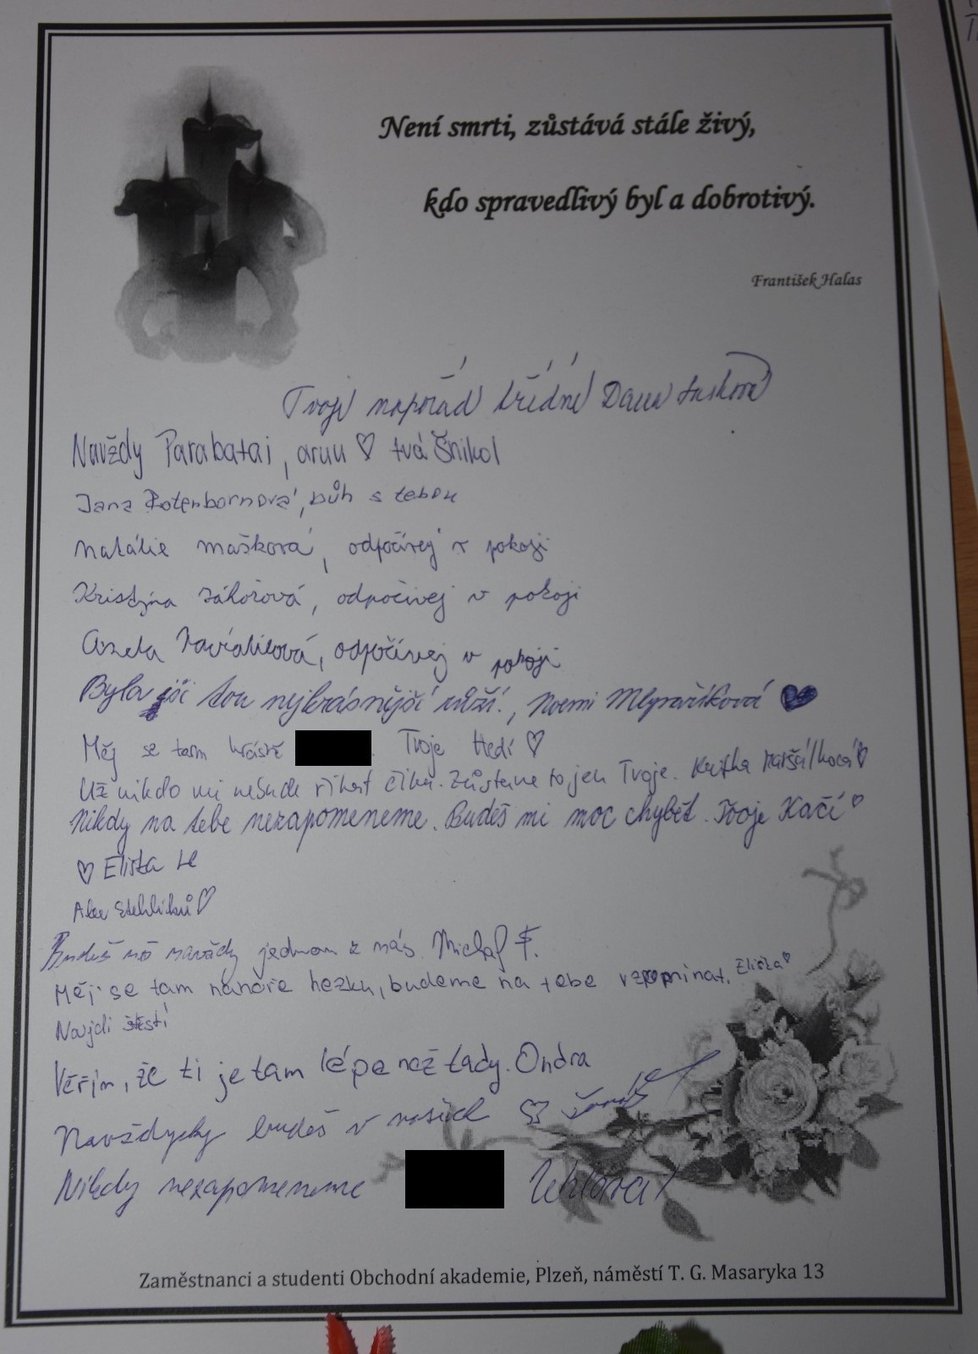 Není smrti, zůstává stále živý,
kdo spravedlivý byl a dobrotivý.
František Halas
Tvoje napořád třídní Dana
Navždy Parabatai, aruu ♡ tvá Šnikol
Jana Rotenbornová, bůh s tebou
Natálie Mašková, odpočívej v pokoji
Kristýna Záhořová, odpočívej v pokoji
Aneta odpočívej v pokoji
Byla jsi tou nejkrásnější růží., Noemi Mlynaříková ♥
Měj se tam krásně Tvoje Hedi ♡
Už nikdo mi nebude říkat Zůstane to jen Tvoje. Kritka Maršálková ♡
Nikdy na tebe nezapomeneme. Budeš mi moc chybět. Tvoje Kačí ♡
♡ Eliška Le
Stehlíků ♡
Budeš už navždy jednou z nás. Michal F.
Měj se tam nahoře hezky, budeme na tebe vzpomínat. Eliška ♡
Najdi štěstí
Věřím, že ti je tam lépe než tady. Ondra
Navždycky budeš v našich ♡
Nikdy nezapomeneme Uhlířová
Zaměstnanci a studenti Obchodní akademie, Plzeň, náměstí T. G. Masaryka 13